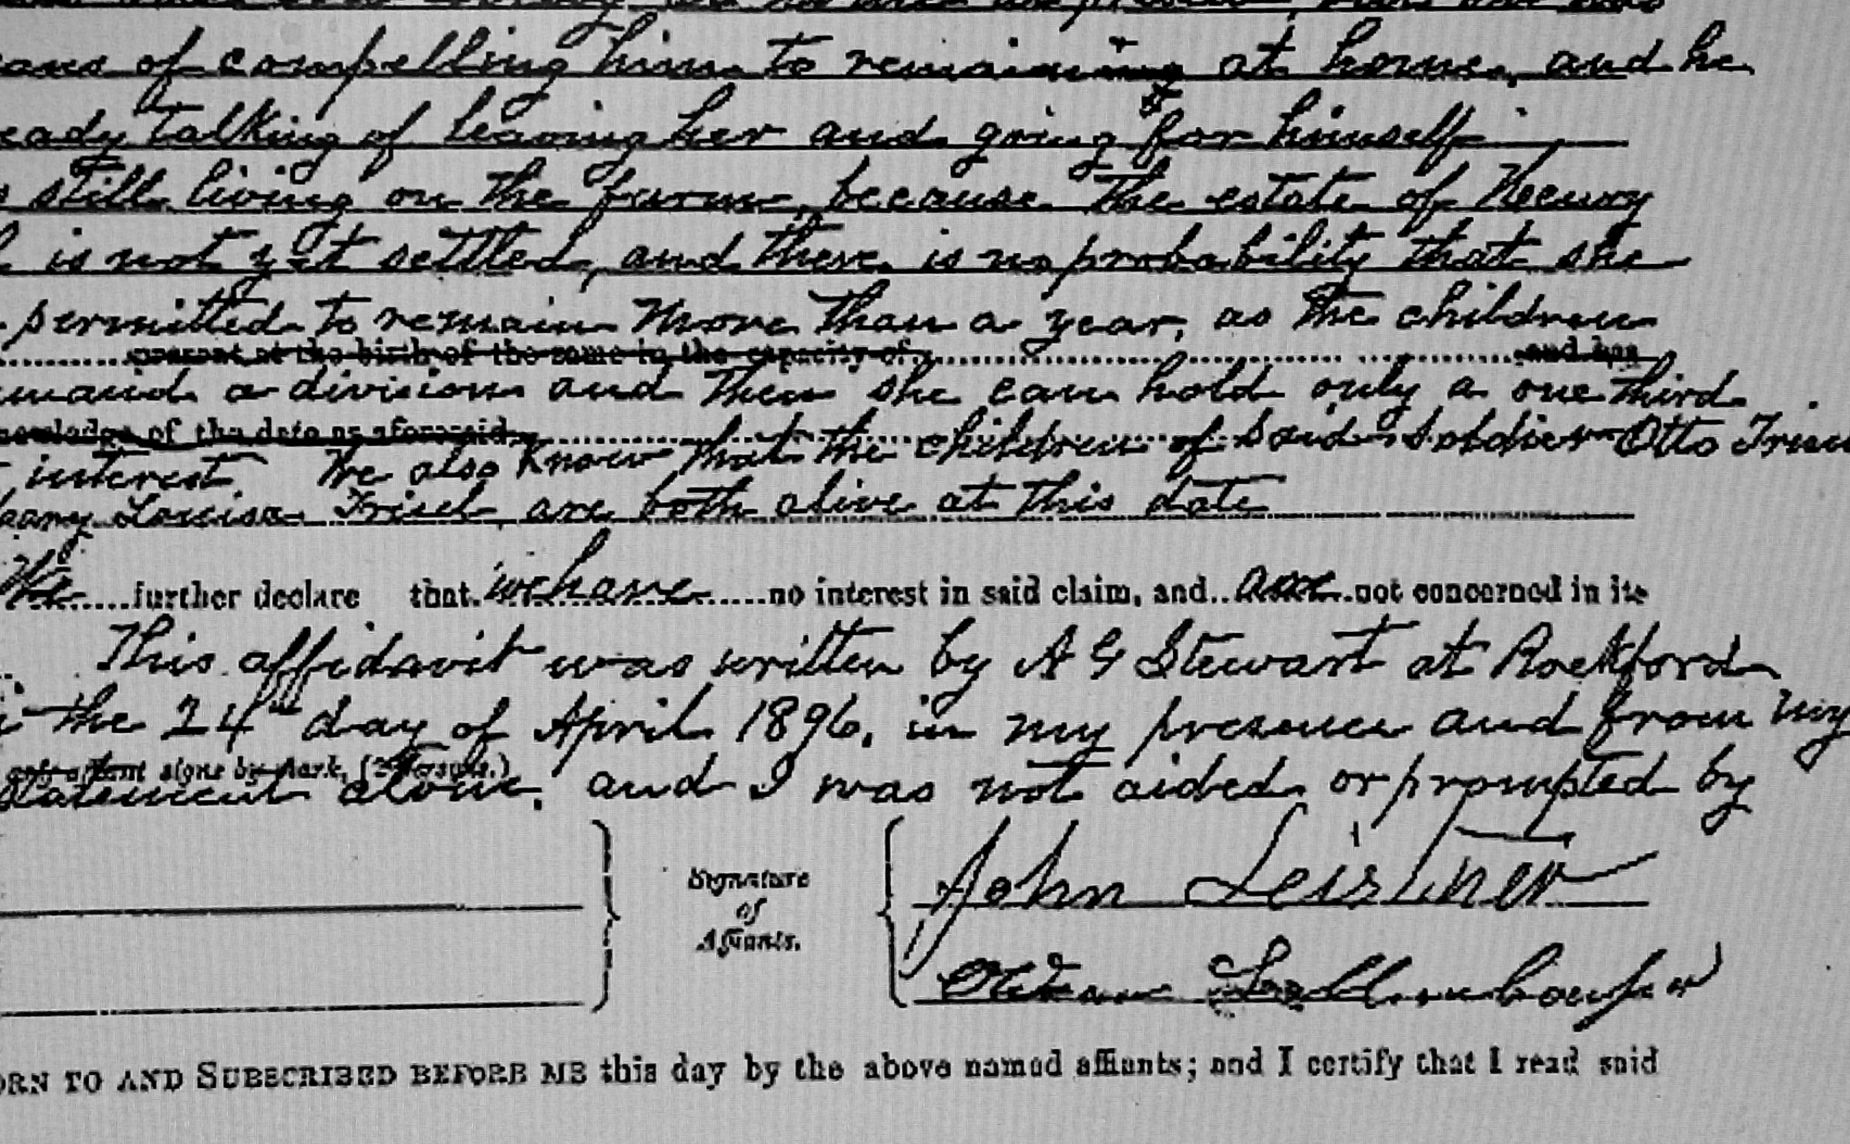 of compelling him to remaining at home, and he
talking of leaving her and going for himself
still living on the farm, because the estate of Henry
is not yet settled, and there is no probability that she
permitted to remain more than a year, as the children
present at the birth of the same in the capacity of and has
a division and then she can hold only a one third
of the date as aforesaid
that the children of said soldier Otto
interest We also know
Louisa Friel, are both alive at this date
We further declare that we have no interest in said claim, and are not concerned in its
This affidavit was written by A G Stewart at Rockford
the 24th day of April 1896, in my presence and from my
sign by mark, (2 Persons.)
statement alone, and I was not aided or prompted by
Signature
of
Affiants.
John Leistner
TO AND SUBSCRIBED BEFORE ME this day by the above named affiants; and I certify that I read said